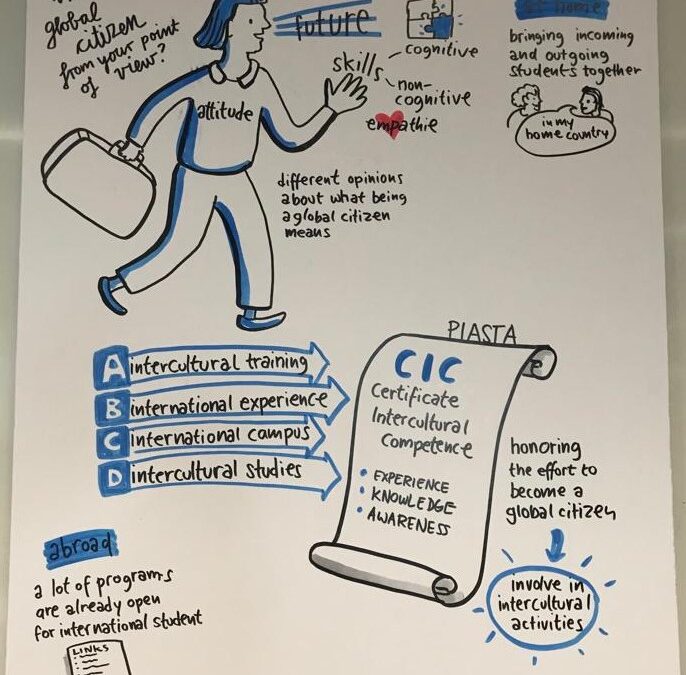 global
citizen
from your point
of view?
attitude
future
skills
cognitive
non-
cognitive
empathie
at home
bringing incoming
and outgoing
students together
in my
home country
different opinions
about what being
a global citizen
means
A intercultural training
B international experience
C international campus
D intercultural studies
PIASTA
CIC
Certificate
Intercultural
Competence
• EXPERIENCE
• KNOWLEDGE
• AWARENESS
honoring
the effort to
become a
global citizen
involve in
intercultural
activities
abroad
a lot of programs
are already open
for international student
LINKS